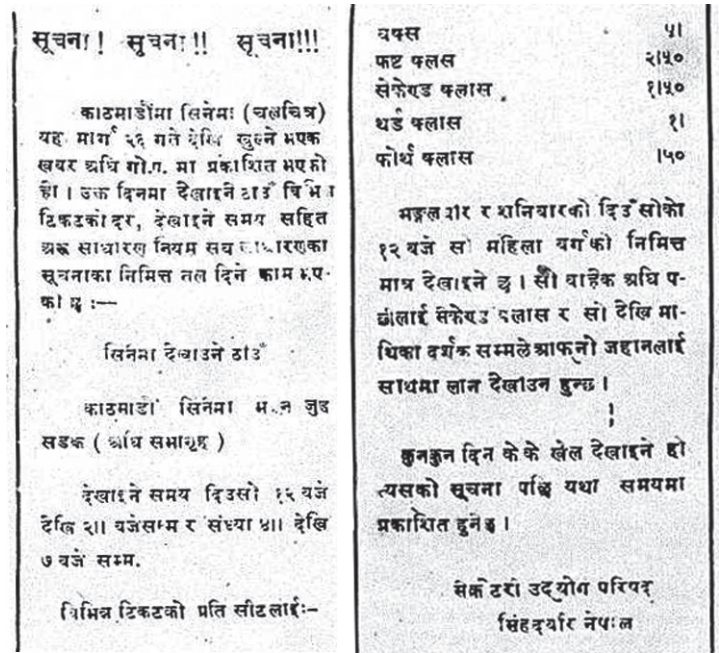 सूचना! सूचना!! सूचना!!!
काठमाडौंमा सिनेमा (चलचित्र)
यह मार्ग २६ गते देखि खुल्ने भएक
खबर अघि गो.प. मा प्रकाशित भएको
हो । उक्त दिनमा देखाइने ठाउँ विभिन्न
टिकटको दर, देखाइने समय सहित
अरू साधारण नियम सर्व साधारणका
सूचनाका निमित्त तल दिने काम भए-
को छ :—
सिनेमा देखाउने ठाउँ
काठमाडौं सिनेमा भवन जुद्ध
सडक ( अघि सभागृह )
देखाइने समय दिउसो १२ बजे
देखि २॥ बजेसम्म र संध्या ४॥ देखि
७ बजे सम्म.
विभिन्न टिकटको प्रति सीटलाई:-
बक्स ५।
फष्ट क्लास २।५०
सेकेण्ड क्लास १।५०
थर्ड क्लास १।
फोर्थ क्लास ।५०
मङ्गलवार र शनिवारको दिउँसोको
१२ बजे सो महिला वर्गको निमित्त
मात्र देखाइने छ । सो बाहेक अघि प-
छीलाई सेकेण्ड क्लास र सो देखि मा-
थिका दर्शक सम्मले आफ्नो जहानलाई
साथमा लान देखाउन हुन्छ ।
कुनकुन दिन के के खेल देखाइने हो
त्यसको सूचना पछि यथा समयमा
प्रकाशित हुनेछ ।
सेक्रेटरी उद्योग परिषद्
सिंहदर्वार नेपाल